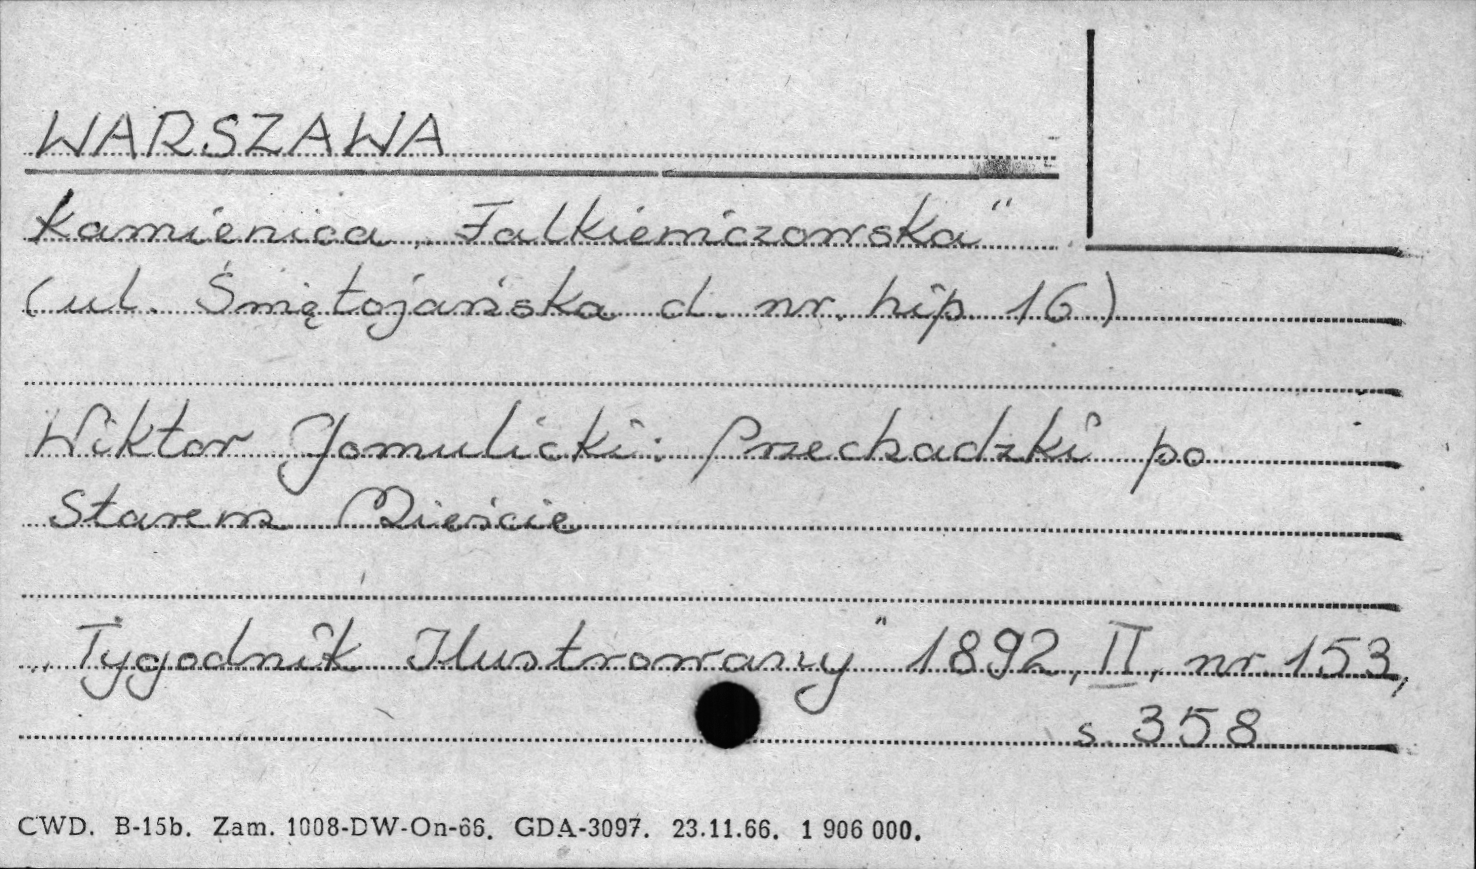 WARSZAWA
Kamienica „Falkiewiczowska"
(ul. Świętojańska d. nr. hip. 16)
Wiktor Gomulicki: Przechadzki po
Starem Mieście
„Tygodnik Ilustrowany" 1892, II, nr. 153,
s. 358
CWD. B-15b. Zam. 1008-DW-On-66. GDA-3097. 23.11.66. 1 906 000.